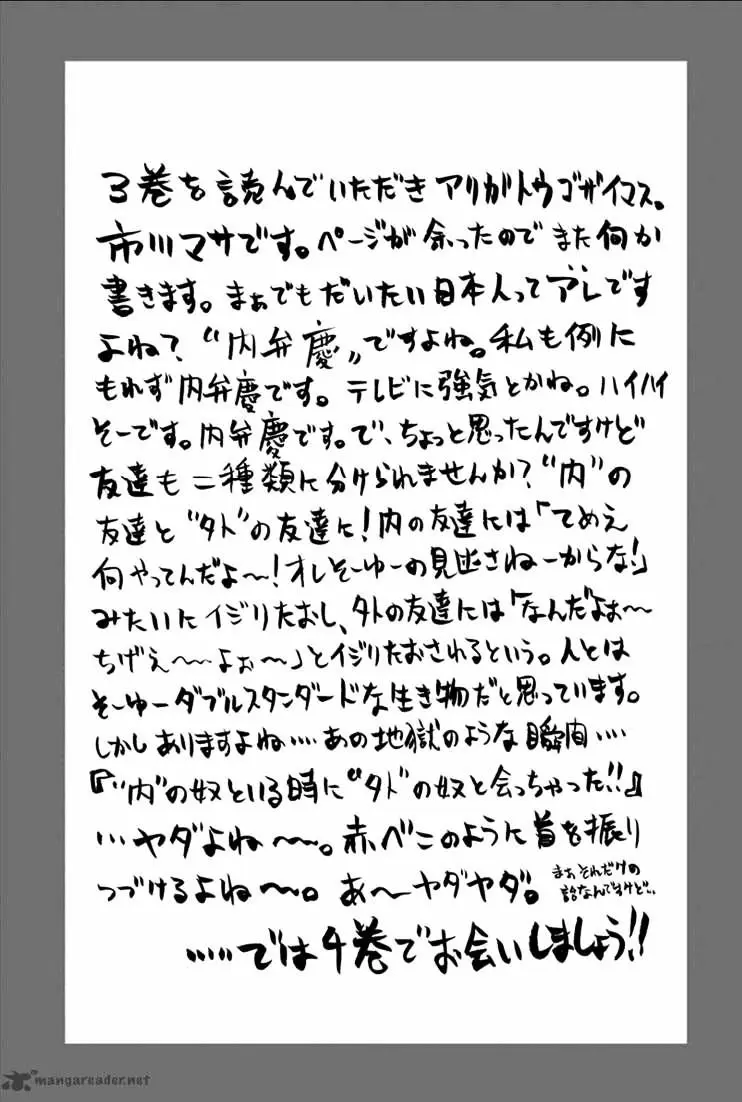 3巻を読んでいただきアリガトウゴザイマス。
市川マサです。ページが余ったのでまた何か
書きます。まぁでもだいたい日本人ってアレです
よね？“内弁慶”ですよね。私も例に
もれず内弁慶です。テレビに強気とかね。ハイハイ
そーです。内弁慶です。で、ちょっと思ったんですけど
友達も二種類に分けられませんか？“内”の
友達と“外”の友達に！内の友達には「てめえ
何やってんだよ〜！オレそーゆーの見逃さねーからな！」
みたいにイジりたおし、外の友達には「なんだよぉ〜
ちげえ〜〜よぉ〜」とイジりたおされるという。人とは
そーゆーダブルスタンダードな生き物だと思っています。
しかしありますよね‥‥あの地獄のような瞬間‥‥
『“内”の奴といる時に“外”の奴と会っちゃった!!』
…ヤダよね〜〜。赤べこのように首を振り
つづけるよね〜〜。あ〜ヤダヤダ。
まぁそれだけの
話なんですけど…
……では4巻でお会いしましょう!!
mangareader.net